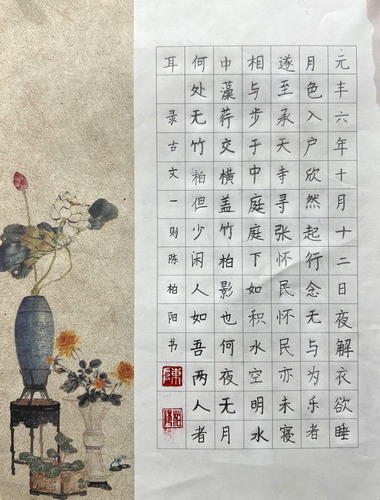 元丰六年十月十二日夜解衣欲睡
月色入户欣然起行念无与为乐者
遂至承天寺寻张怀民怀民亦未寝
相与步于中庭庭下如积水空明水
中藻荇交横盖竹柏影也何夜无月
何处无竹柏但少闲人如吾两人者
耳 录古文一则陈柏阳书
陳